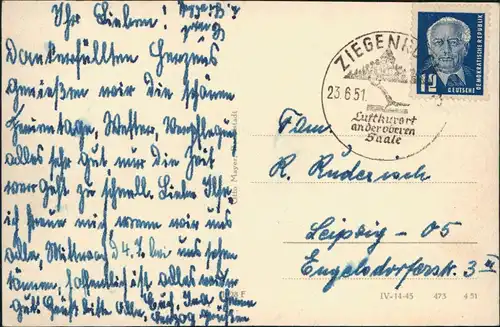 Ihr Lieben!
Dankerfüllten Herzens
genießen wir die schönen
Ferientage, Wetter, Verpflegung
alles sehr gut nur die Zeit
vergeht zu schnell. Liebe Ilse
ich freue mich wenn wir uns
alle, Mittwoch d 4.7. bei uns sehen
können, hoffentlich ist alles wieder
gut. Grüßt bitte alle.
ZIEGENRÜ
23.6.51.
Luftkurort
an der oberen
Saale
12
DEUTSCHE
DEMOKRATISCHE REPUBLIK
Fam.
R. Ruderisch
Leipzig - O5
Engelsdorferstr. 3 II
Otto Mayer
IV-14-45 475 4 51